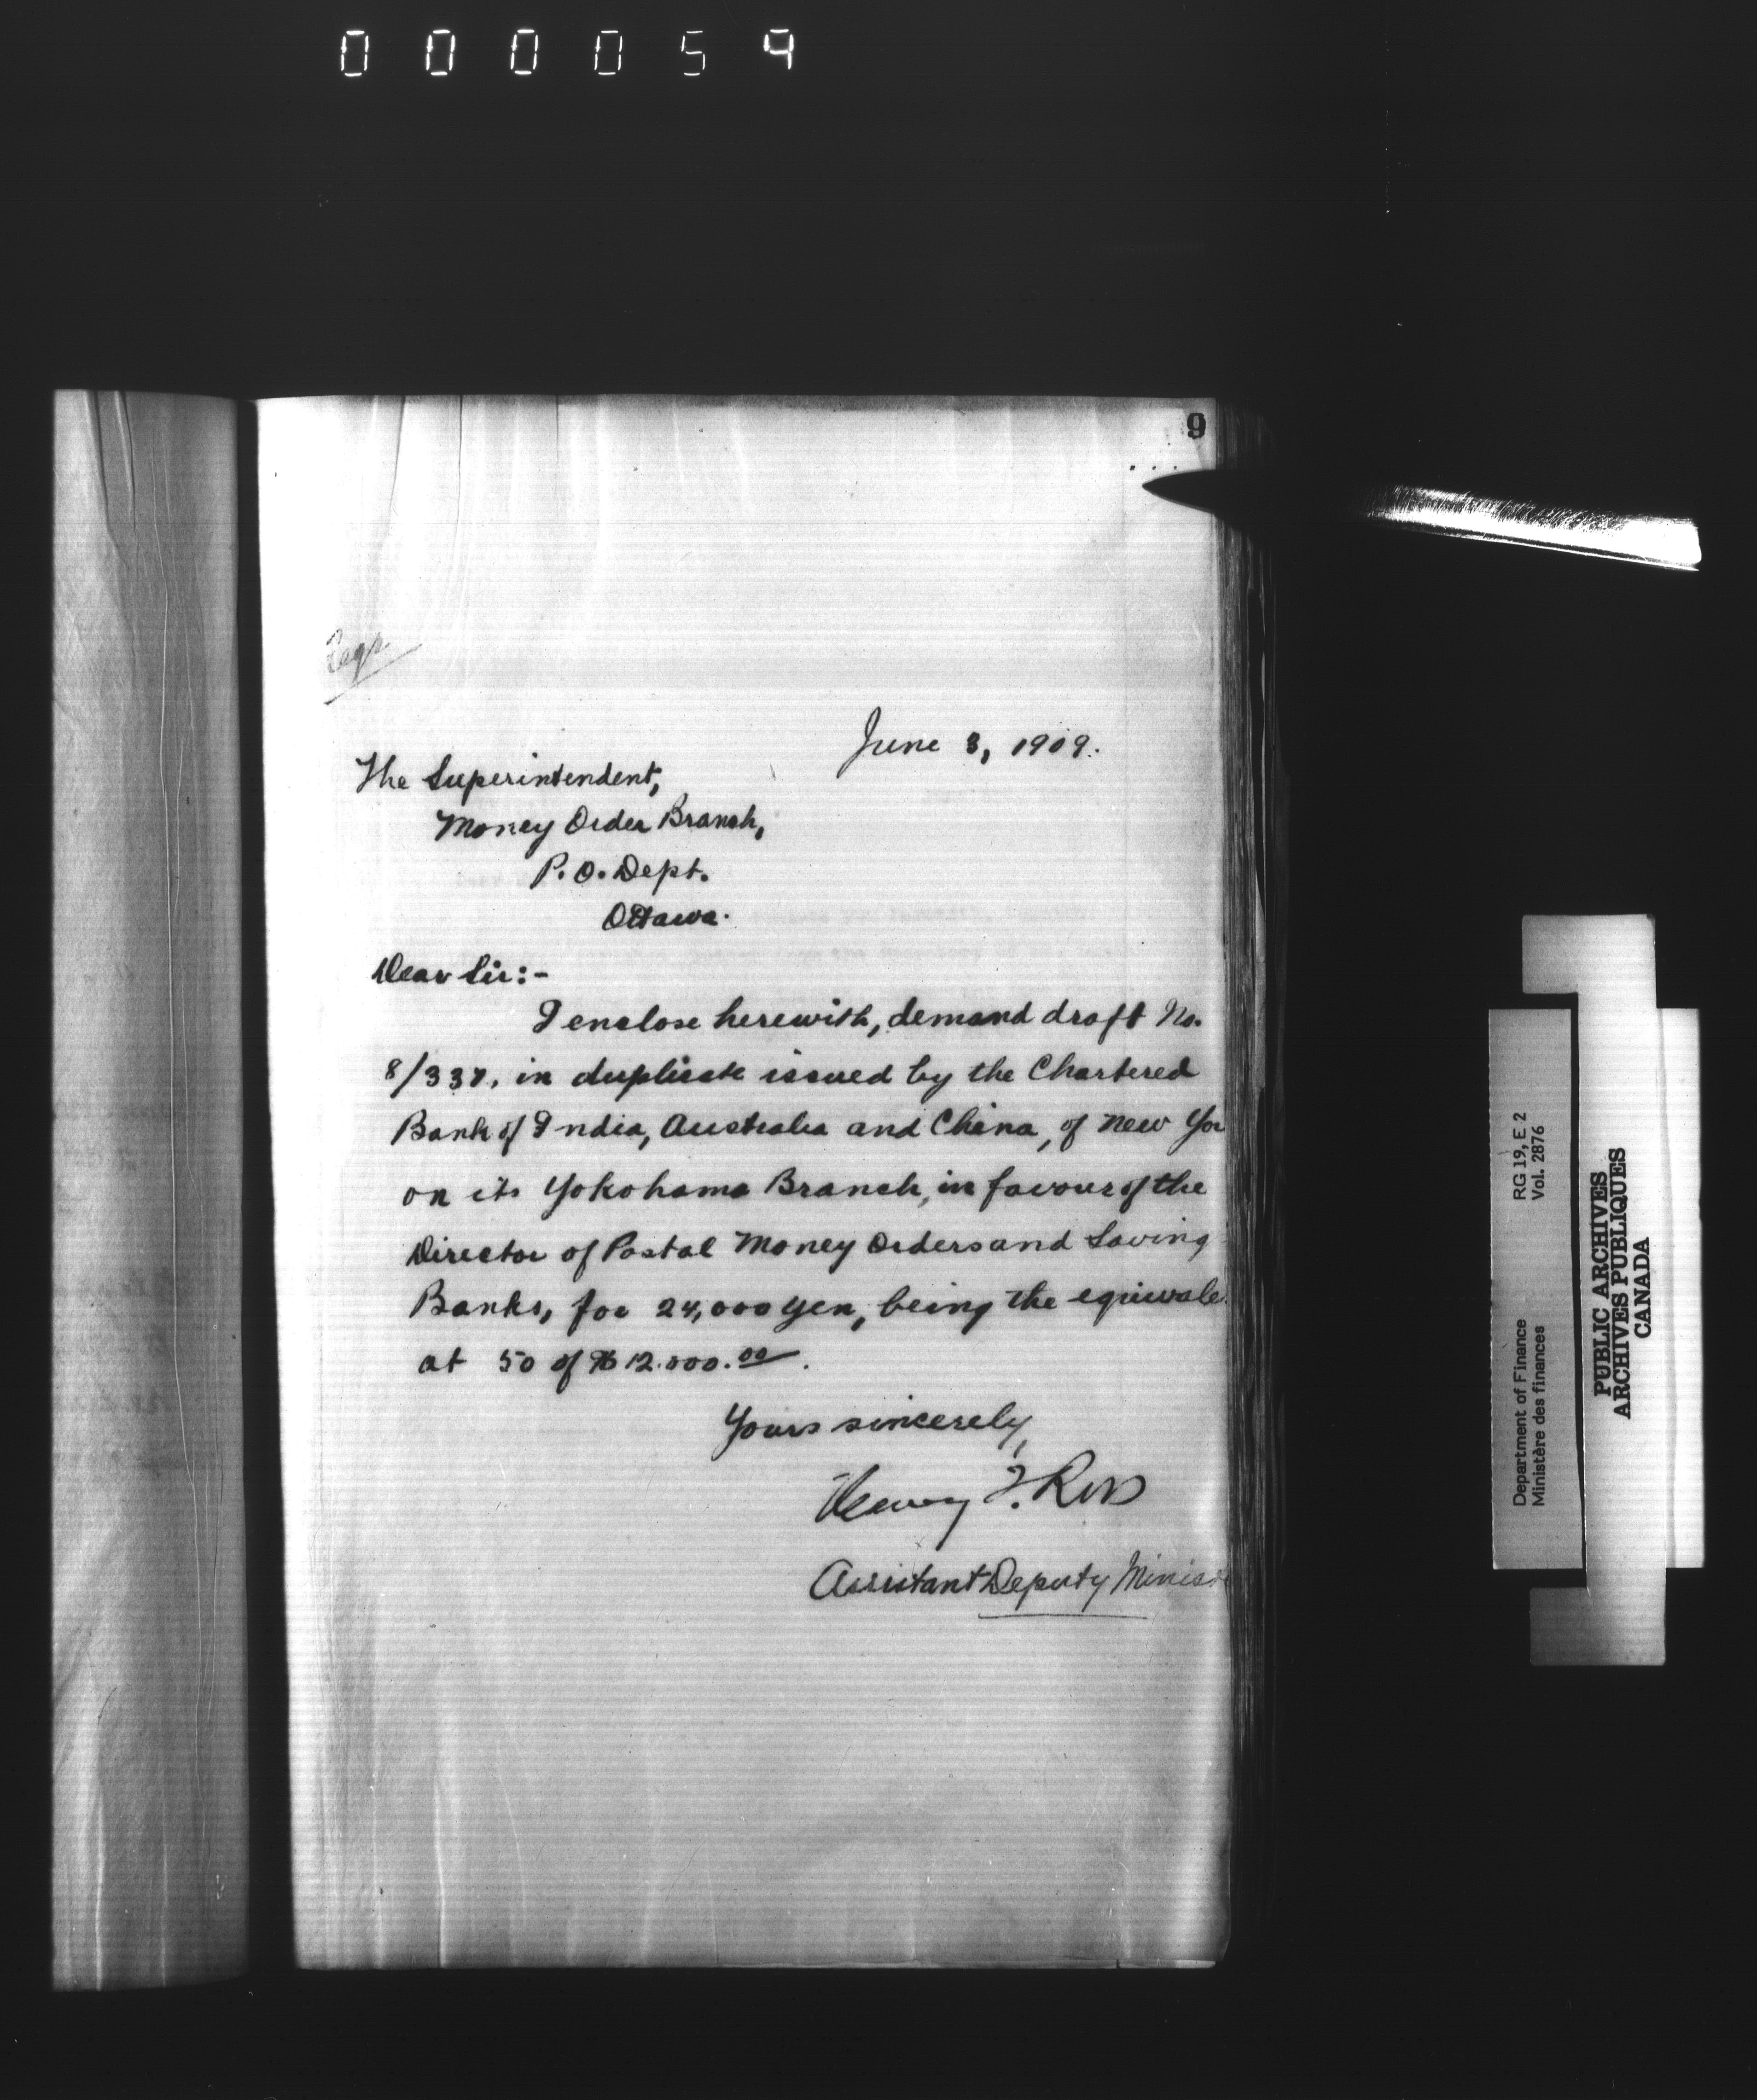 000059
9
June 3, 1909.
The Superintendent,
Money Order Branch,
P. O. Dept.
Ottawa.
Dear Sir:-
I enclose herewith, demand draft No.
8/337, in duplicate issued by the Chartered
Bank of India, Australia and China, of New Yor
on its Yokohama Branch, in favour of the
Director of Postal Money Orders and Saving
Banks, for 24,000 yen, being the equivale
at 50 of $12.000.00.
Yours sincerely,
Henry T. Ross
Assistant Deputy Minist
Department of Finance RG 19, E 2
Ministère des finances Vol. 2876
PUBLIC ARCHIVES
ARCHIVES PUBLIQUES
CANADA